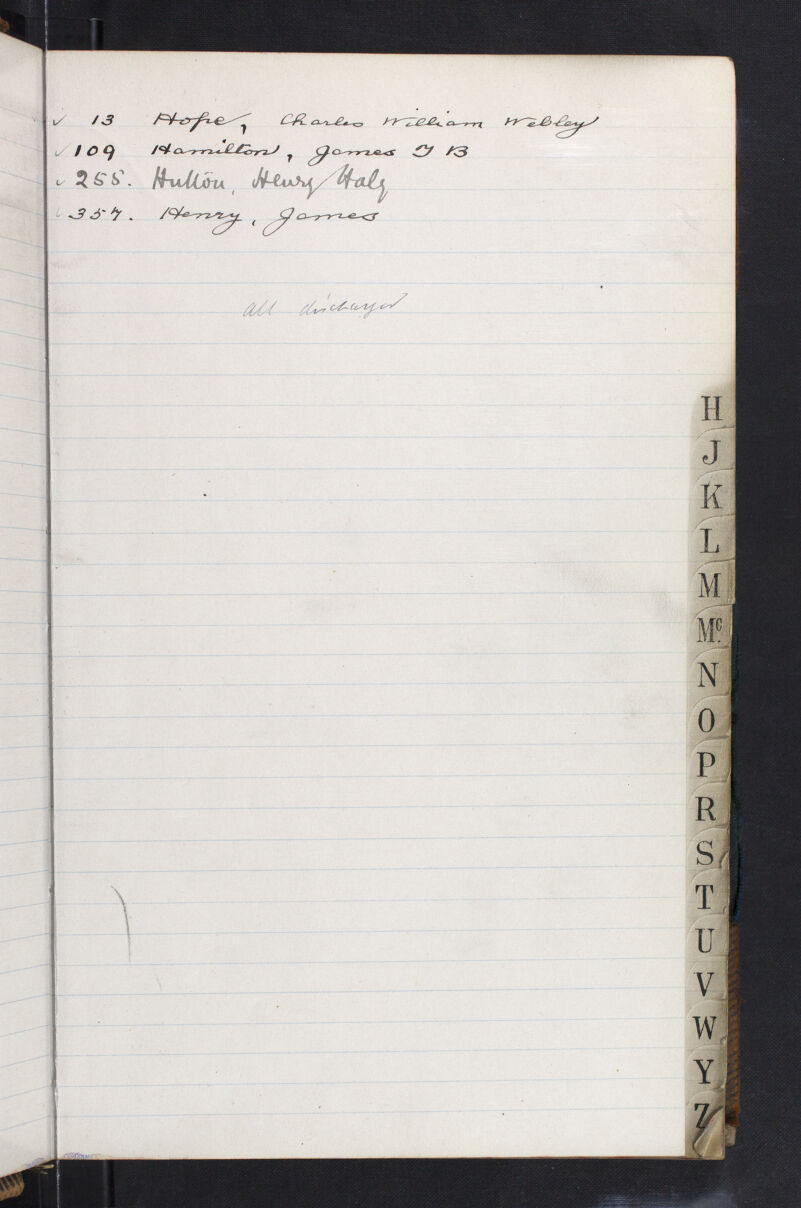 ✓ 13 Hope, Charles William Webley
✓ 109 Hamilton, James T B
✓ 255. Hutton, Henry Haly
✓ 357. Henry, James
all discharged
H
J
K
L
M
Mc.
N
O
P
R
S
T
U
V
W
Y
Z